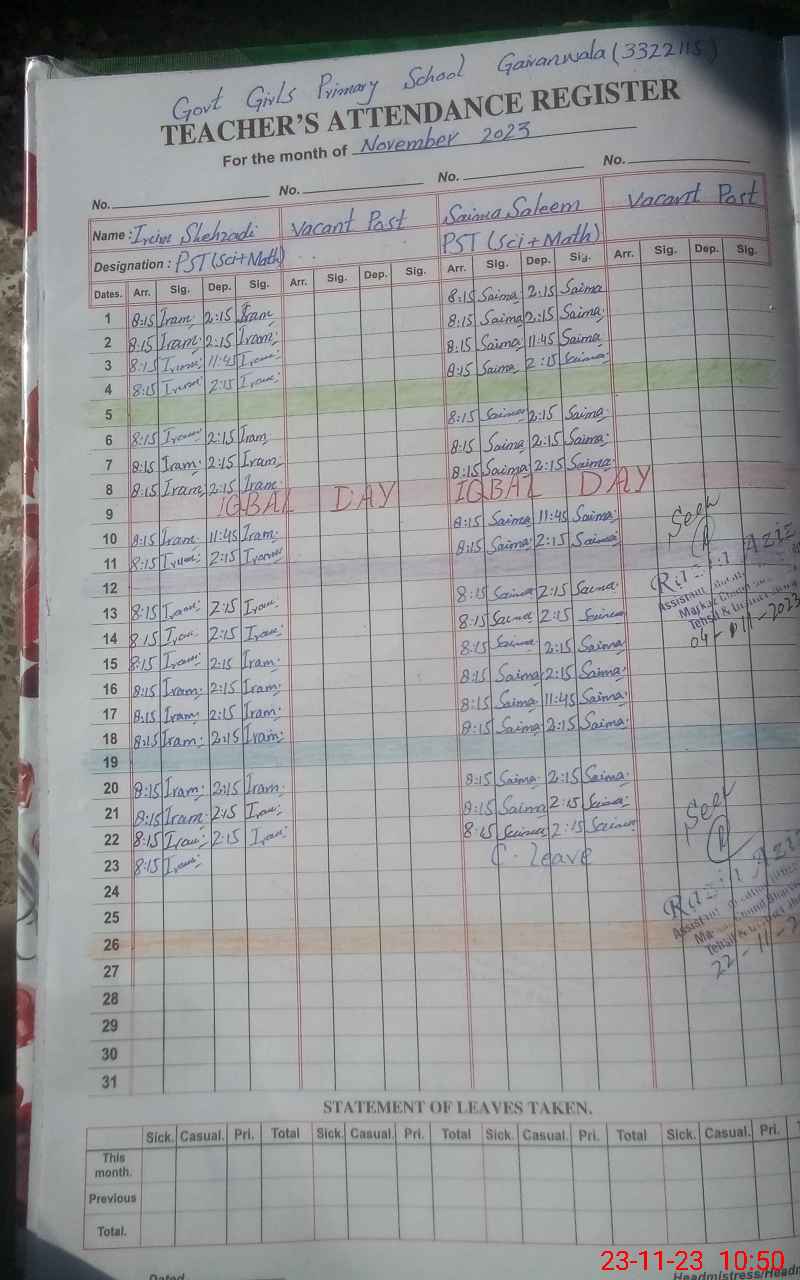 Govt Girls Primary School Gairanwala (3322115)
TEACHER'S ATTENDANCE REGISTER
For the month of November 2023
No. No. No. No.
Name : Iram Shehzadi Vacant Post Saima Saleem Vacant Post
Designation : PST (Sci+Math) PST (Sci+Math)
Dates. Arr. Sig. Dep. Sig. Arr. Sig. Dep. Sig. Arr. Sig. Dep. Sig. Arr. Sig. Dep. Sig.
1 8:15 Iram 2:15 Iram 8:15 Saima 2:15 Saima
2 8:15 Iram 2:15 Iram 8:15 Saima 2:15 Saima
3 8:15 Iram 11:45 Iram 8:15 Saima 11:45 Saima
4 8:15 Iram 2:15 Iram 8:15 Saima 2:15 Saima
5
6 8:15 Iram 2:15 Iram 8:15 Saima 2:15 Saima
7 8:15 Iram 2:15 Iram 8:15 Saima 2:15 Saima
8 8:15 Iram 2:15 Iram 8:15 Saima 2:15 Saima
9 IQBAL DAY IQBAL DAY
10 8:15 Iram 11:45 Iram 8:15 Saima 11:45 Saima
11 8:15 Iram 2:15 Iram 8:15 Saima 2:15 Saima
12
13 8:15 Iram 2:15 Iram 8:15 Saima 2:15 Saima
14 8:15 Iram 2:15 Iram 8:15 Saima 2:15 Saima
15 8:15 Iram 2:15 Iram 8:15 Saima 2:15 Saima
16 8:15 Iram 2:15 Iram 8:15 Saima 2:15 Saima
17 8:15 Iram 2:15 Iram 8:15 Saima 11:45 Saima
18 8:15 Iram 2:15 Iram 8:15 Saima 2:15 Saima
19
20 8:15 Iram 2:15 Iram 8:15 Saima 2:15 Saima
21 8:15 Iram 2:15 Iram 8:15 Saima 2:15 Saima
22 8:15 Iram 2:15 Iram 8:15 Saima 2:15 Saima
23 8:15 Iram C. leave
24
25
26
27
28
29
30
31
Seen
Assistant
04-11-2023
Seen
Assistant
22-11-2
STATEMENT OF LEAVES TAKEN.
Sick. Casual. Pri. Total Sick. Casual. Pri. Total Sick. Casual. Pri. Total Sick. Casual. Pri.
This month.
Previous
Total.
Dated
Headmistress/Headm
23-11-23 10:50